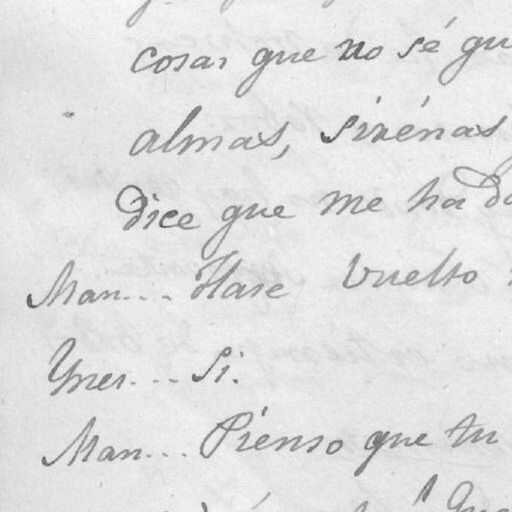 cosas que no sé qu
almas, sirénas
Dice que me ha da
Man... Hase vuelto
Ynes... Si.
Man... Piénso que tu